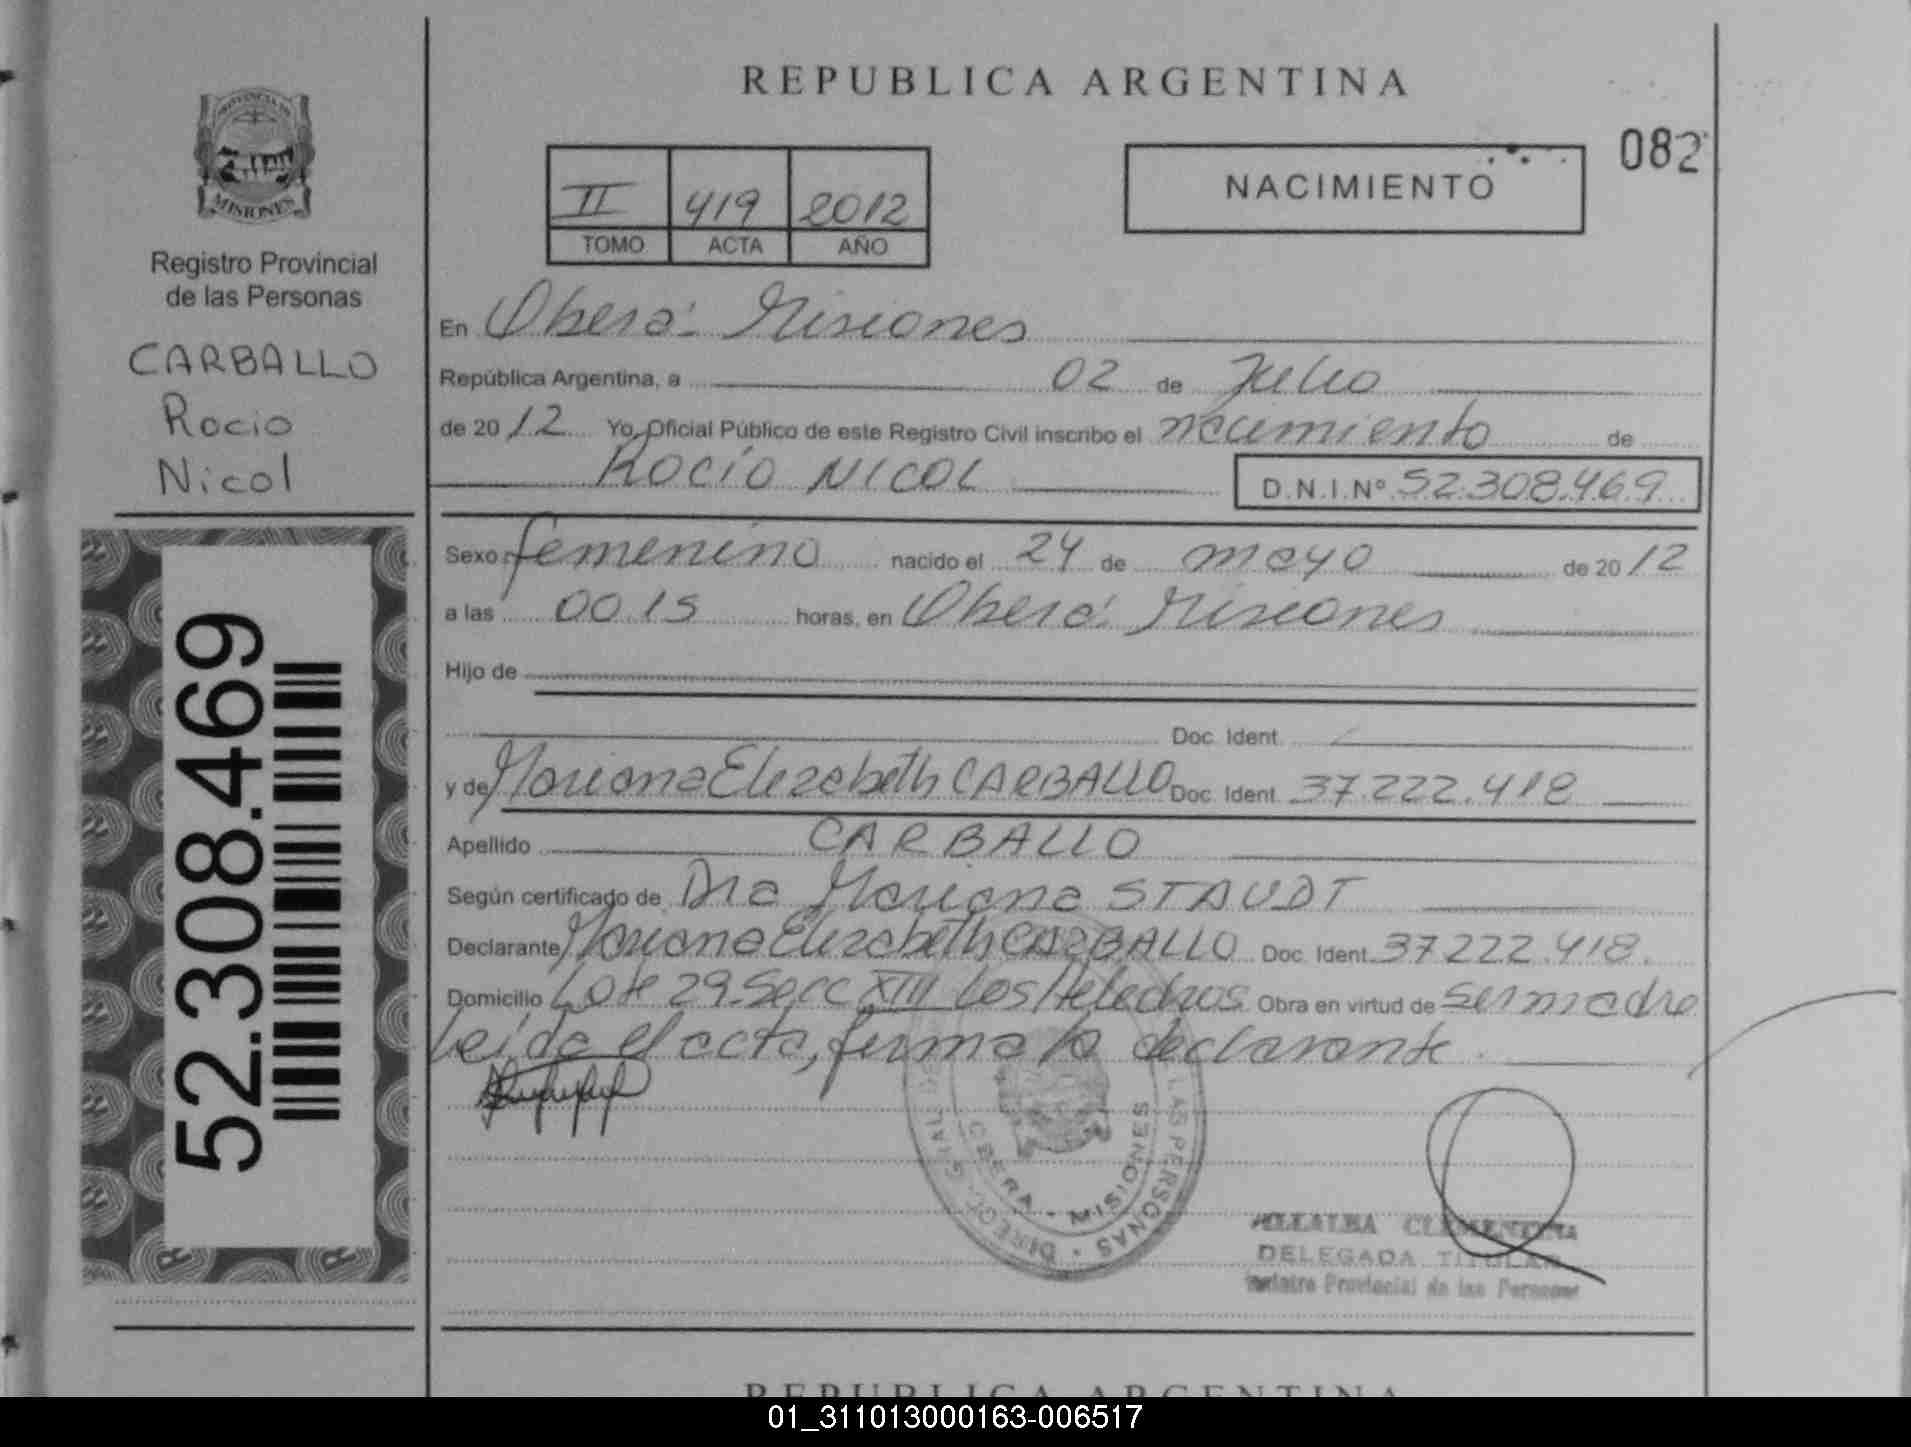 REPUBLICA ARGENTINA
082
NACIMIENTO
II 419 2012
TOMO ACTA AÑO
PROVINCIA DE
MISIONES
Registro Provincial
de las Personas
CARBALLO
Rocio
Nicol
52.308.469
En Oberá: Misiones
República Argentina, a 02 de Julio
de 2012 Yo, Oficial Público de este Registro Civil inscribo el nacimiento de
ROCÍO NICOL D.N.I.Nº 52.308.469
Sexo femenino nacido el 24 de mayo de 2012
a las 00.15 horas, en Oberá: Misiones
Hijo de
Doc. Ident.
y de Mariana Elizabeth CARBALLO Doc. Ident. 37.222.418
Apellido CARBALLO
Según certificado de Dra Mariana STAUDT
Declarante Mariana Elizabeth CARBALLO Doc. Ident. 37.222.418.
Domicilio Lote 29-Secc XIII Los Helechos Obra en virtud de ser madre
Leída el acta, firma la declarante.
LAS PERSONAS · DIRECC
OBERA · MISIONES
VILLALBA CLEMENTINA
DELEGADA TITULAR
Registro Provincial de las Personas
REPUBLICA ARGENTINA
01_311013000163-006517